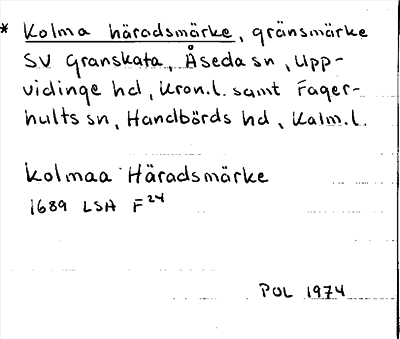 * Kolma häradsmärke, gränsmärke
SV Granskata, Åseda sn, Upp-
vidinge hd, Kron.l. samt Fager-
hults sn, Handbörds hd, Kalm.l.
Kolmaa Häradsmärke
1689 LSA F24
POL 1974